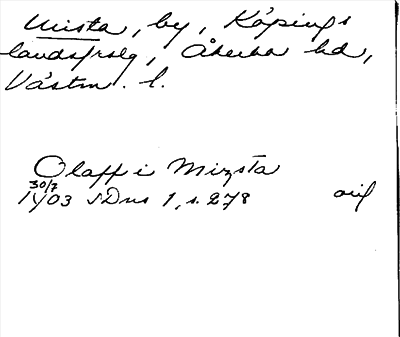 Mista, by, Köpings
landsförsg, Åkerbo hd,
Västm. l.
Olaff i Mizsta
30/7
1403 SDns 1, s. 278 orig